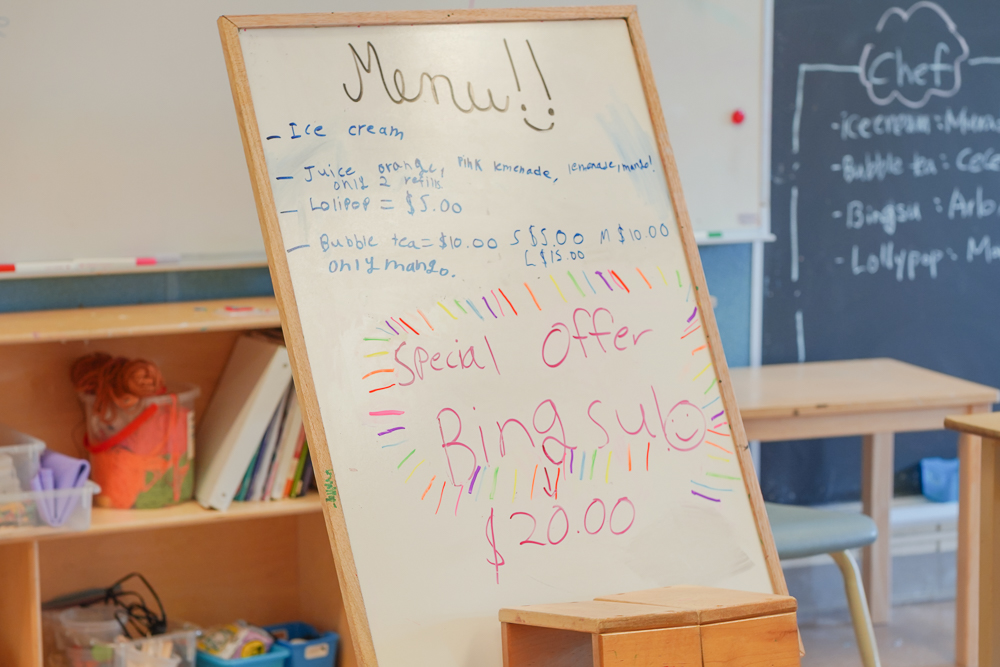 Menu!!
- Ice cream
- Juice orange, Pink lemenade, lemonade, mango!
only 2 refills
- Lolipop = $5.00
- Bubble tea = $10.00 S $5.00 M $10.00
L $15.00
only mango.
Special Offer
Bingsu!
$20.00
Chef
- ice cream :
- Bubble tea :
- Bingsu :
- Lollypop :